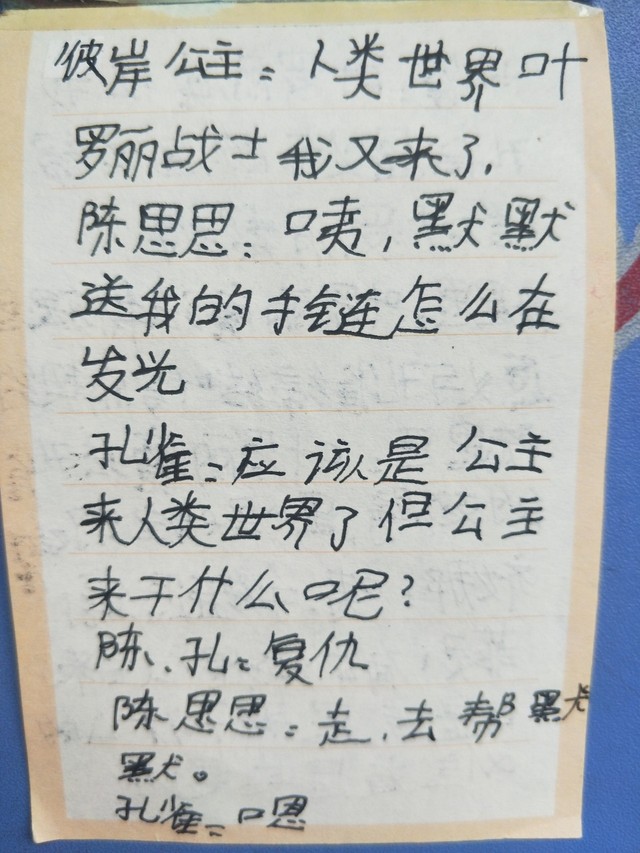 彼岸公主：人类世界叶
罗丽战士我又来了.
陈思思：咦，默默
送我的手链怎么在
发光
孔雀：应该是公主
来人类世界了但公主
来干什么呢？
陈、孔：复仇
陈思思：走，去帮默
默。
孔雀：嗯